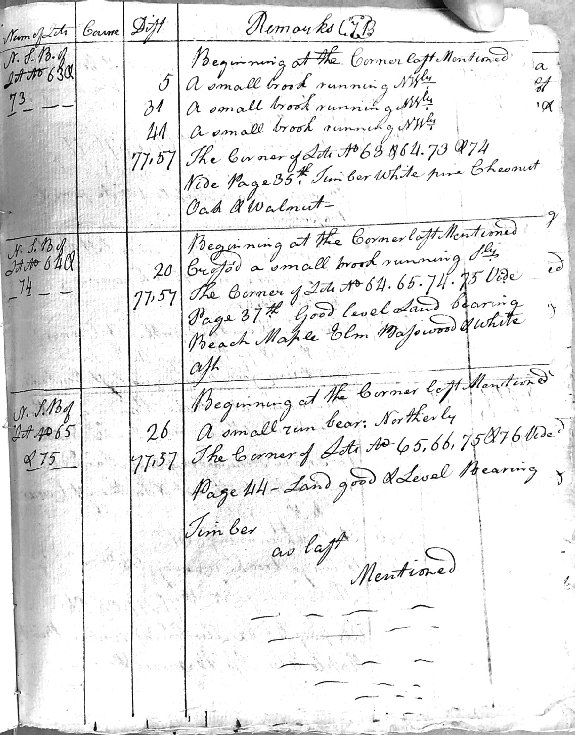 Num of Lots Course Dist Remarks
N. S. B. of Beginning at the Corner last Mentioned
Lot No 63 & 5 A small brook running NWly
73 31 A small brook running NWly
41 A small brook running NWly
77,57 The Corner of Lots No 63 & 64. 73 & 74
Vide Page 35th. Timber White pine Chesnut
Oak & Walnut
N. S. B. of Beginning at the Corner last Mentioned
Lot No 64 & 20 Crossd a small brook running Sly
74 77.57 The Corner of Lots No 64. 65. 74. 75 Vide
Page 37th Good level Land bearing
Beach Maple Elm Basswood & White
ash
Beginning at the Corner last Mentioned
N. S. B of
Lot No 65 26 A small run bear: Northerly
& 75 77,57 The Corner of Lots No 65, 66, 75 & 76 Vide
Page 44 - Land good & Level Bearing
Timber
as last
Mentioned